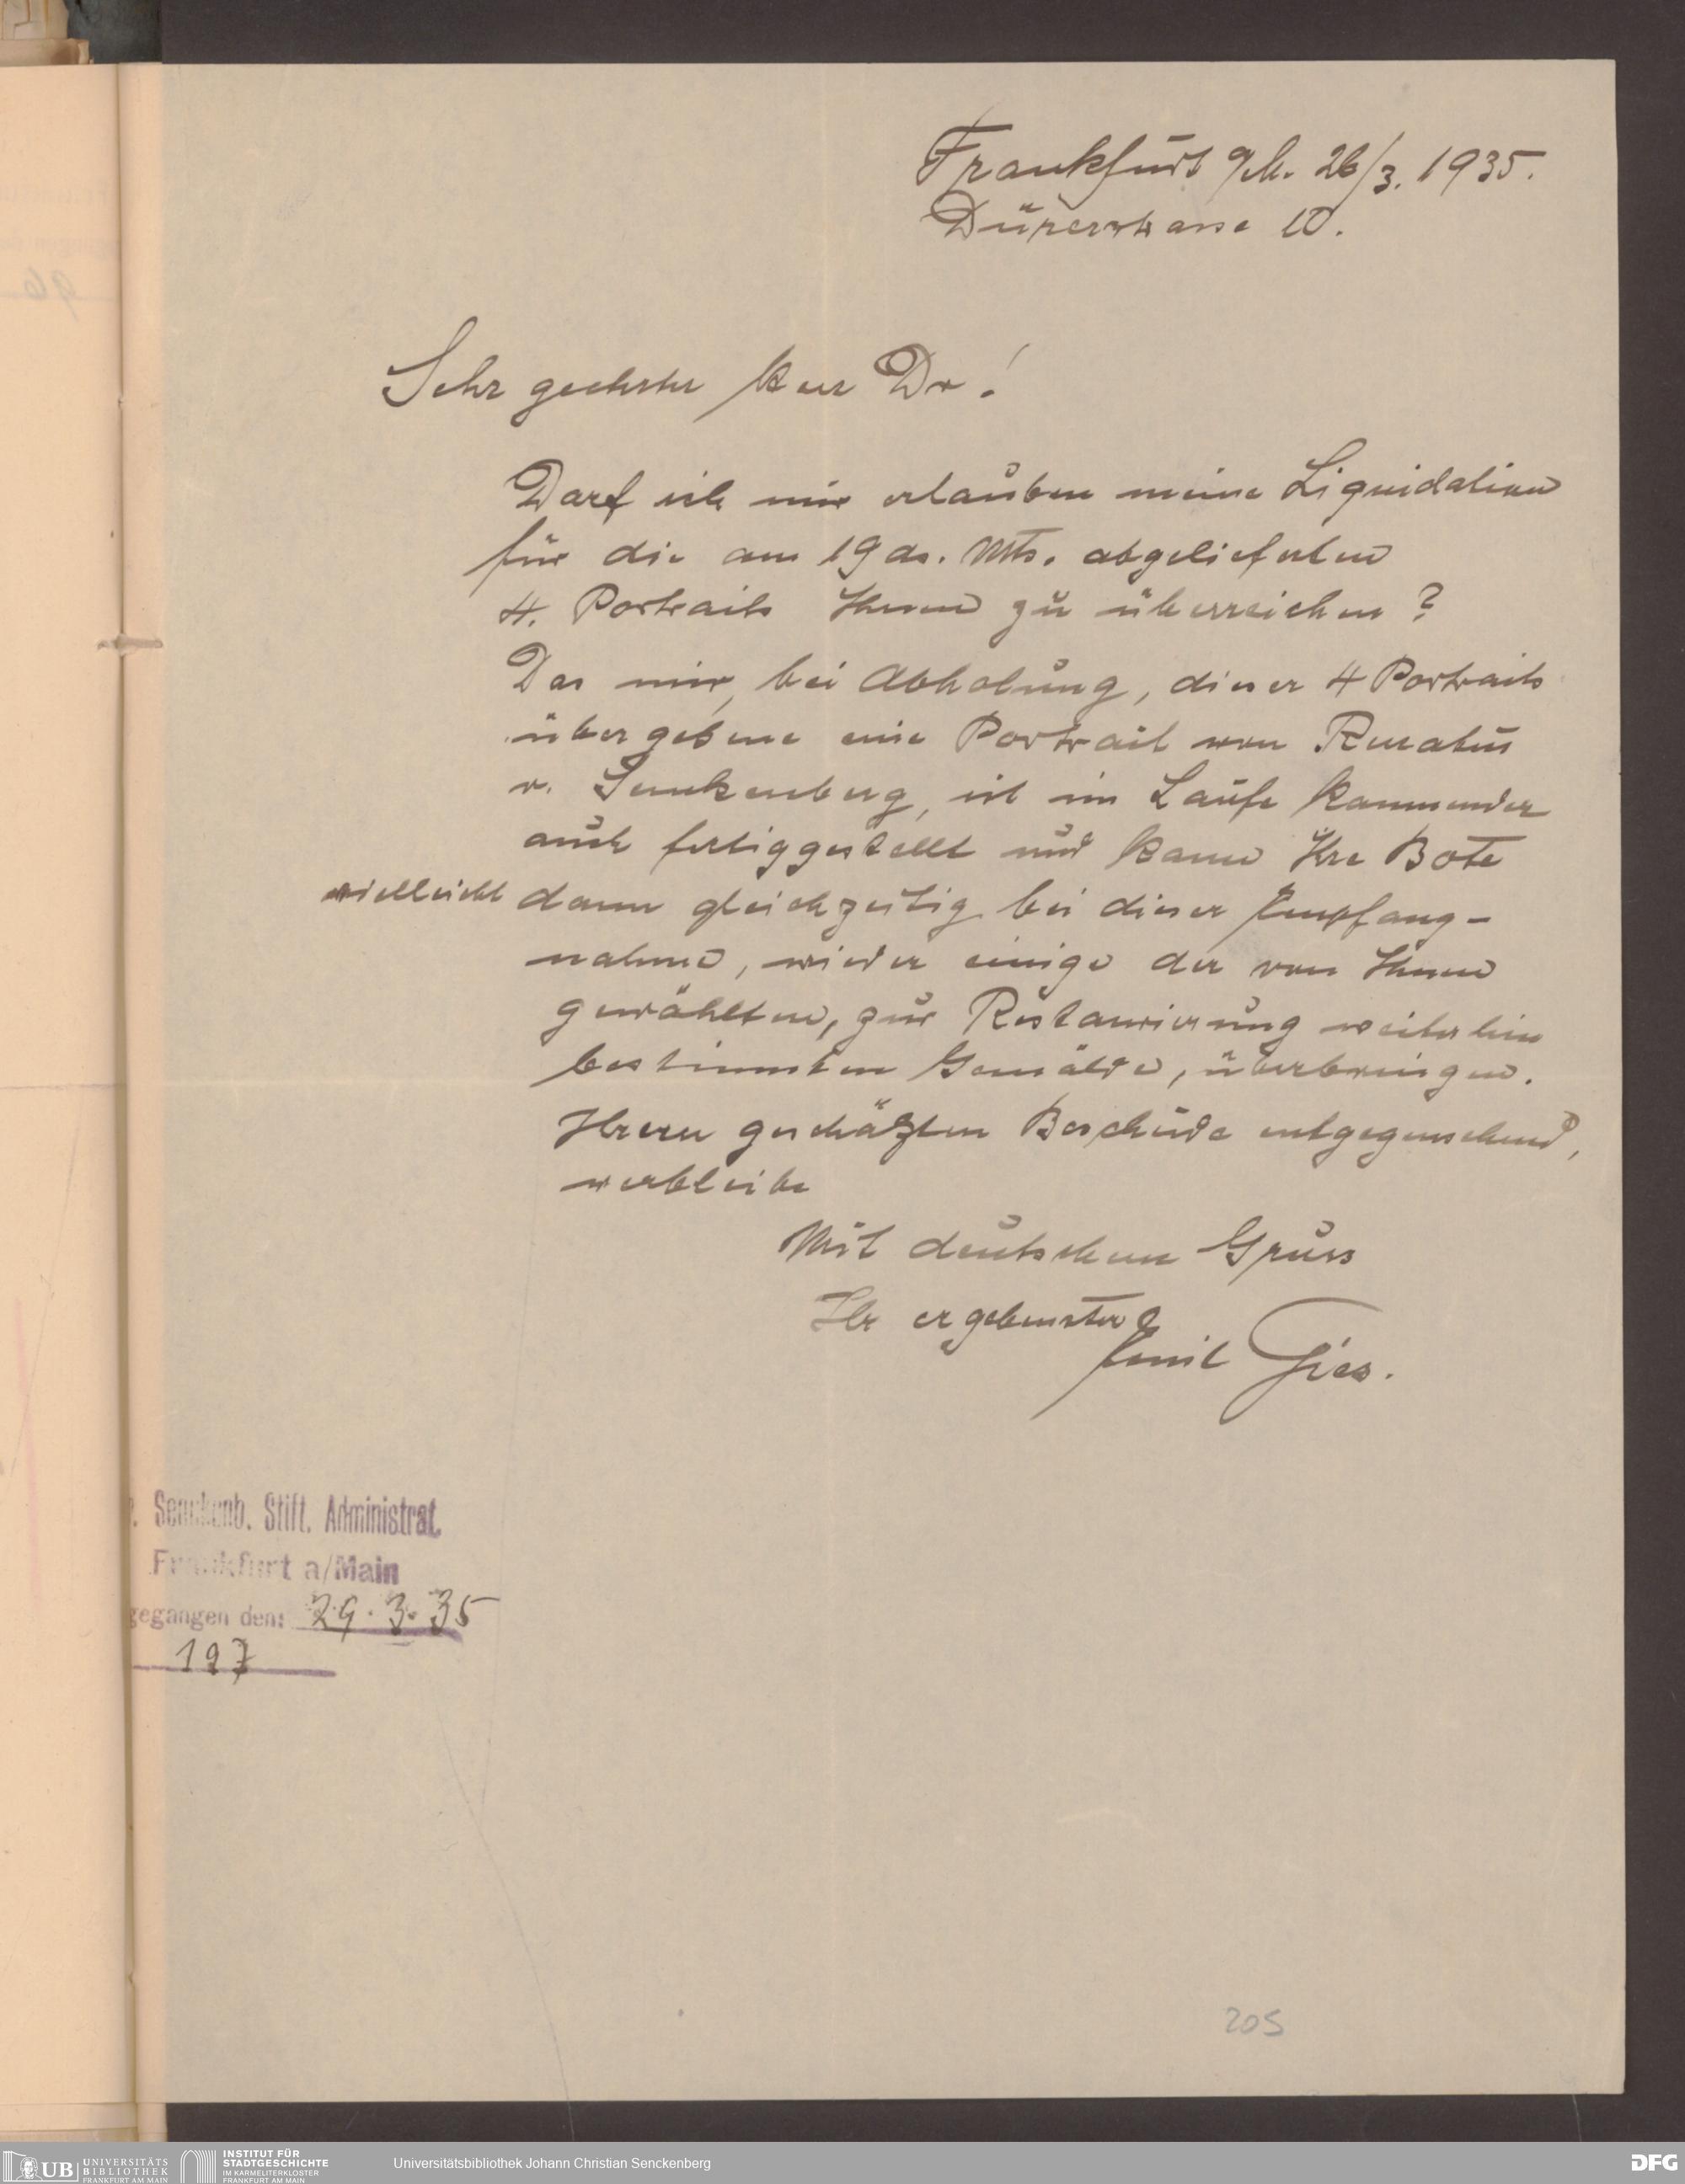 Frankfurt a/M. 26/3. 1935.
Dürerstrasse 10.
Sehr geehrter Herr Dr!
Darf ich mir erlauben meine Liquidation
für die am 19 ds. Mts. abgelieferten
4. Portraits Ihnen zu überreichen?
Das mir, bei Abholung, dieser 4 Portraits
übergebene eine Portrait von Renatus
v. Senkenberg, ist im Laufe kommender
auch fertiggestellt und kann Ihre Bote
vielleicht dann gleichzeitig bei dieser Empfang-
nahme, wieder einige der von Ihnen
gewählten, zur Restaurierung weiterhin
bestimmten Gemälde, überbringen.
Ihrem geschäzten Bescheide entgegensehend,
verbleibe
Mit deutschem Gruss
Ihr ergebenster
Emil Gies.
r. Senckenb. Stift. Administrat.
Frankfurt a/Main
gegangen den: 29. 3. 35
197
205
UB UNIVERSITÄTS
BIBLIOTHEK
FRANKFURT AM MAIN
INSTITUT FÜR
STADTGESCHICHTE
IM KARMELITERKLOSTER
FRANKFURT AM MAIN
Universitätsbibliothek Johann Christian Senckenberg
DFG